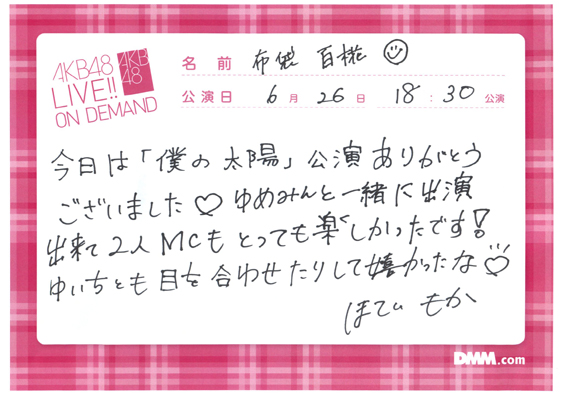 AKB48
LIVE!!
ON DEMAND
AKB
48
名前 布袋 百椛
公演日 6月26日 18:30公演
今日は「僕の太陽」公演ありがとう
ございました♡ ゆめみんと一緒に出演
出来て2人MCもとっても楽しかったです!
ゆいちとも目を合わせたりして嬉かったな♡
ほてい もか
DMM.com